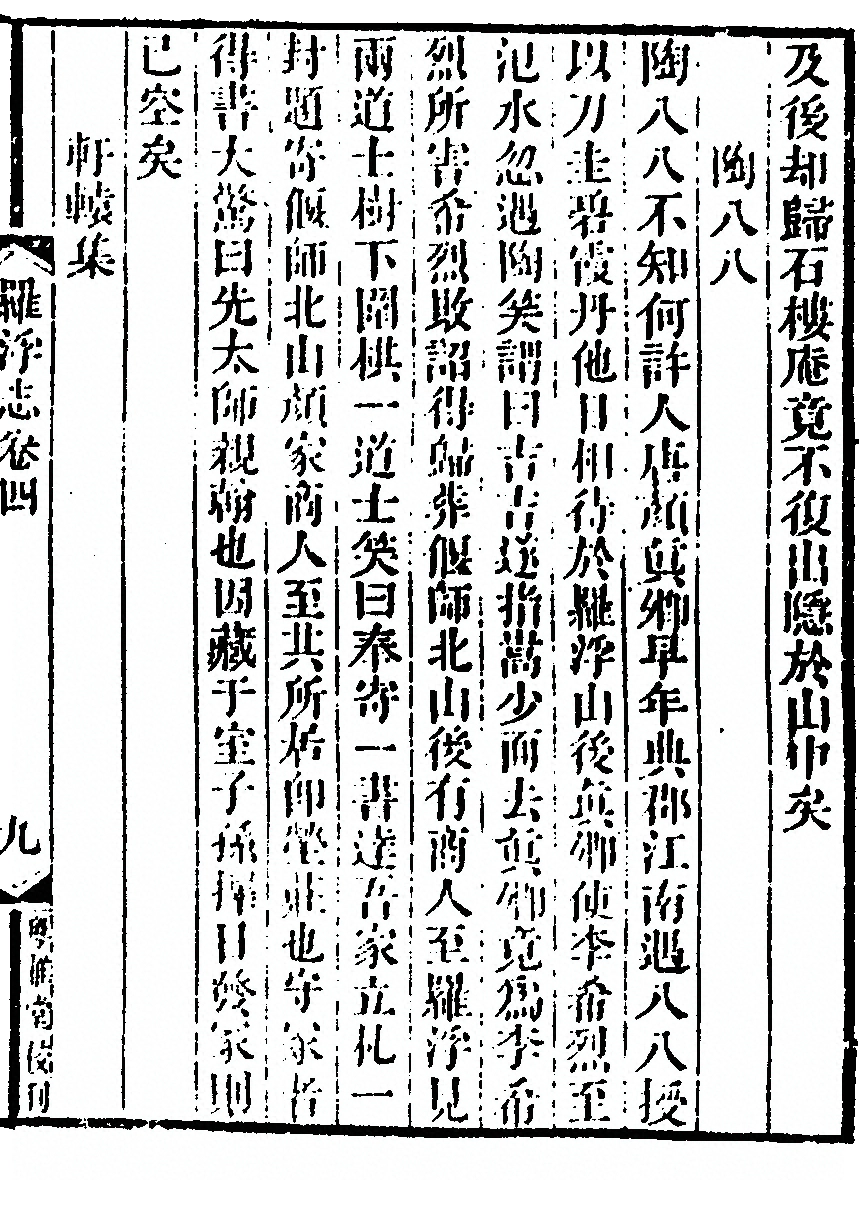 及後却歸石樓庵竟不復出隱於山中矣
陶八八
陶八八不知何許人唐顏眞卿早年典郡江南遇八八授
以刀圭碧霞丹他日相待於羅浮山後眞卿使李希烈至
汜水忽遇陶笑謂曰吉吉遂指嵩少而去眞卿竟爲李希
烈所害希烈敗詔得歸葬偃師北山後有商人至羅浮見
兩道士樹下圍棋一道士笑曰奉寄一書達吾家立札一
封題寄偃師北山顏家商人至其所居卽塋莊也守冢者
得書大驚曰先太師親翰也因藏于室子孫擇日發冢則
已空矣
軒轅集
羅浮志卷四
九
粤雅堂校刊